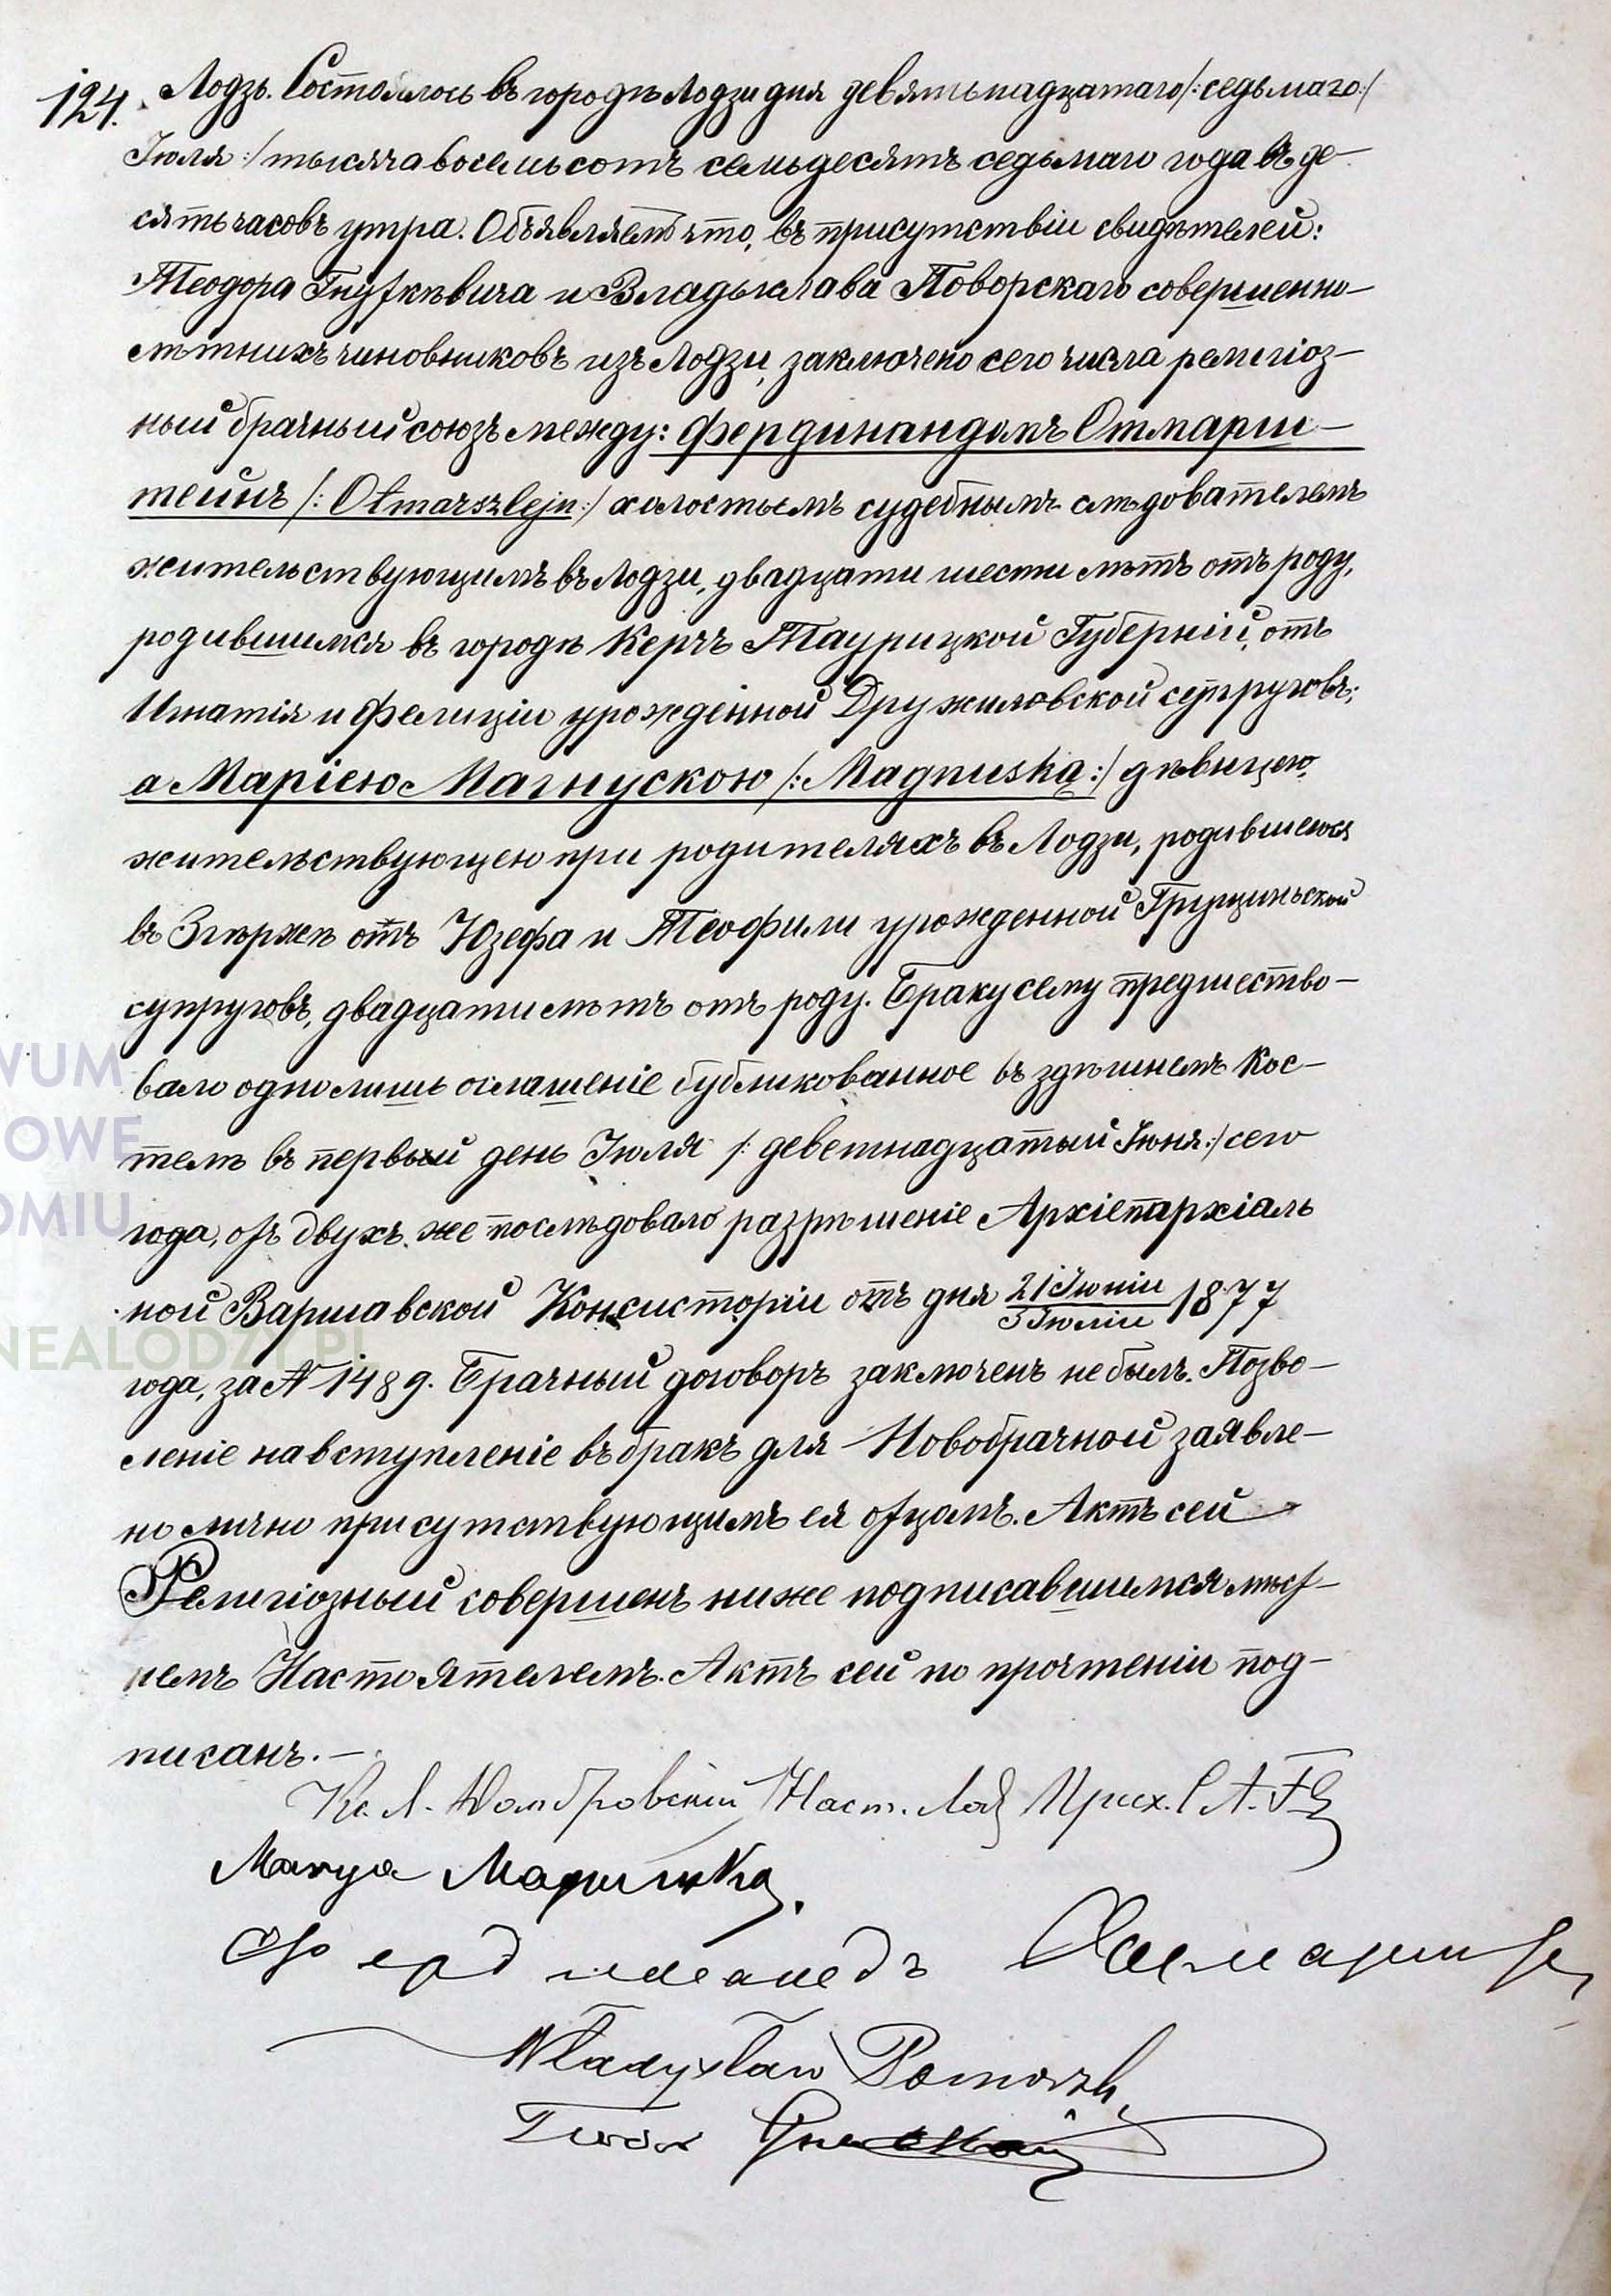 124. Лодзь. Состоялось въ городѣ Лодзи дня девятьнадцатаго /:седьмаго:/
Іюля :/ тысяча восемьсотъ семьдесятъ седьмаго года въ де-
сять часовъ утра. Объявляемъ что, въ присутствіи свидѣтелей:
Теодора и Владыслава Поворскаго совершенно-
лѣтнихъ чиновниковъ изъ Лодзи, заключено сего числа религіоз-
ный брачный союзъ между: Фердинандомъ Отмарш-
тейнъ /: Otmarsztejn :/ холостымъ судебнымъ слѣдователемъ
жительствующимъ въ Лодзи, двадцати шести лѣтъ отъ роду,
родившимся въ городѣ Керчъ Таурицкой Губерніи, отъ
Игнатія и Фелиціи урожденной Дружиловской супруговъ;
а Маріею Магнускою /: Magnuską :/ дѣвицею,
жительствующею при родителяхъ въ Лодзи, родившеюся
въ Згержѣ отъ Юзефа и Теофили урожденной Грущиньской
супруговъ, двадцати лѣтъ отъ роду. Браку сему предшество-
вало одно лишь оглашеніе бубликованное въ здѣшнемъ Кос-
телѣ въ первый день Іюля /: деветнадцатый Іюня :/ сего
года, отъ двухъ же послѣдовало разрѣшеніе Архіепархіаль
ной Варшавской Консисторіи отъ дня 21 Іюніи / 3 Іюліи 1877
года, за № 1489. Брачный договоръ заключенъ не былъ. Позво-
леніе на вступленіе въ бракъ для Новобрачной заявле-
но лично присутствующимъ ея отцомъ. Актъ сей
Религіозный совершенъ ниже подписавшимся мѣст-
немъ Настоятелемъ. Актъ сей по прочтеніи под-
писанъ.-
Кс. Л. Домбровскій Наст. Лод Прих.
Marya Magnuska.
Фердинандъ
Władysław
Teodor
WUM
OWE
OMIU
NEALODZY.PL